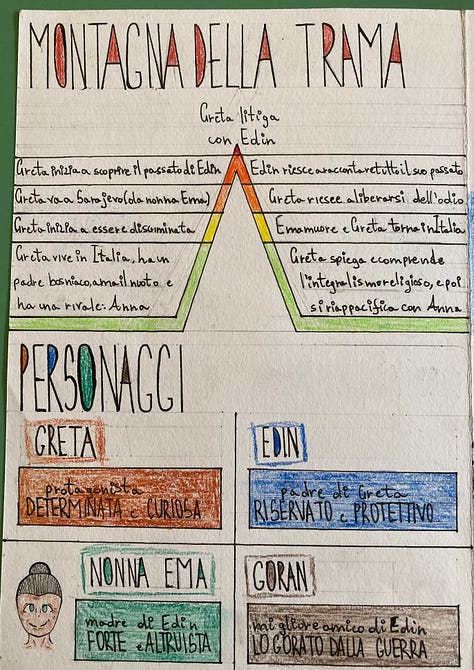 MONTAGNA DELLA TRAMA
Greta litiga
con Edin
Greta inizia a scoprire il passato di Edin
Edin riesce a raccontare tutto il suo passato
Greta va a Sarajevo (da nonna Ema)
Greta riesce a liberarsi dell'odio
Greta inizia a essere discriminata
Ema muore e Greta torna in Italia
Greta vive in Italia, ha un
padre bosniaco, ama il nuoto e
ha una rivale: Anna
Greta spiega e comprende
l'integralismo religioso, e poi
si riappacifica con Anna
PERSONAGGI
GRETA
protagonista
DETERMINATA e CURIOSA
EDIN
padre di Greta
RISERVATO e PROTETTIVO
NONNA EMA
madre di Edin
FORTE e ALTRUISTA
GORAN
migliore amico di Edin
LOGORATO DALLA GUERRA